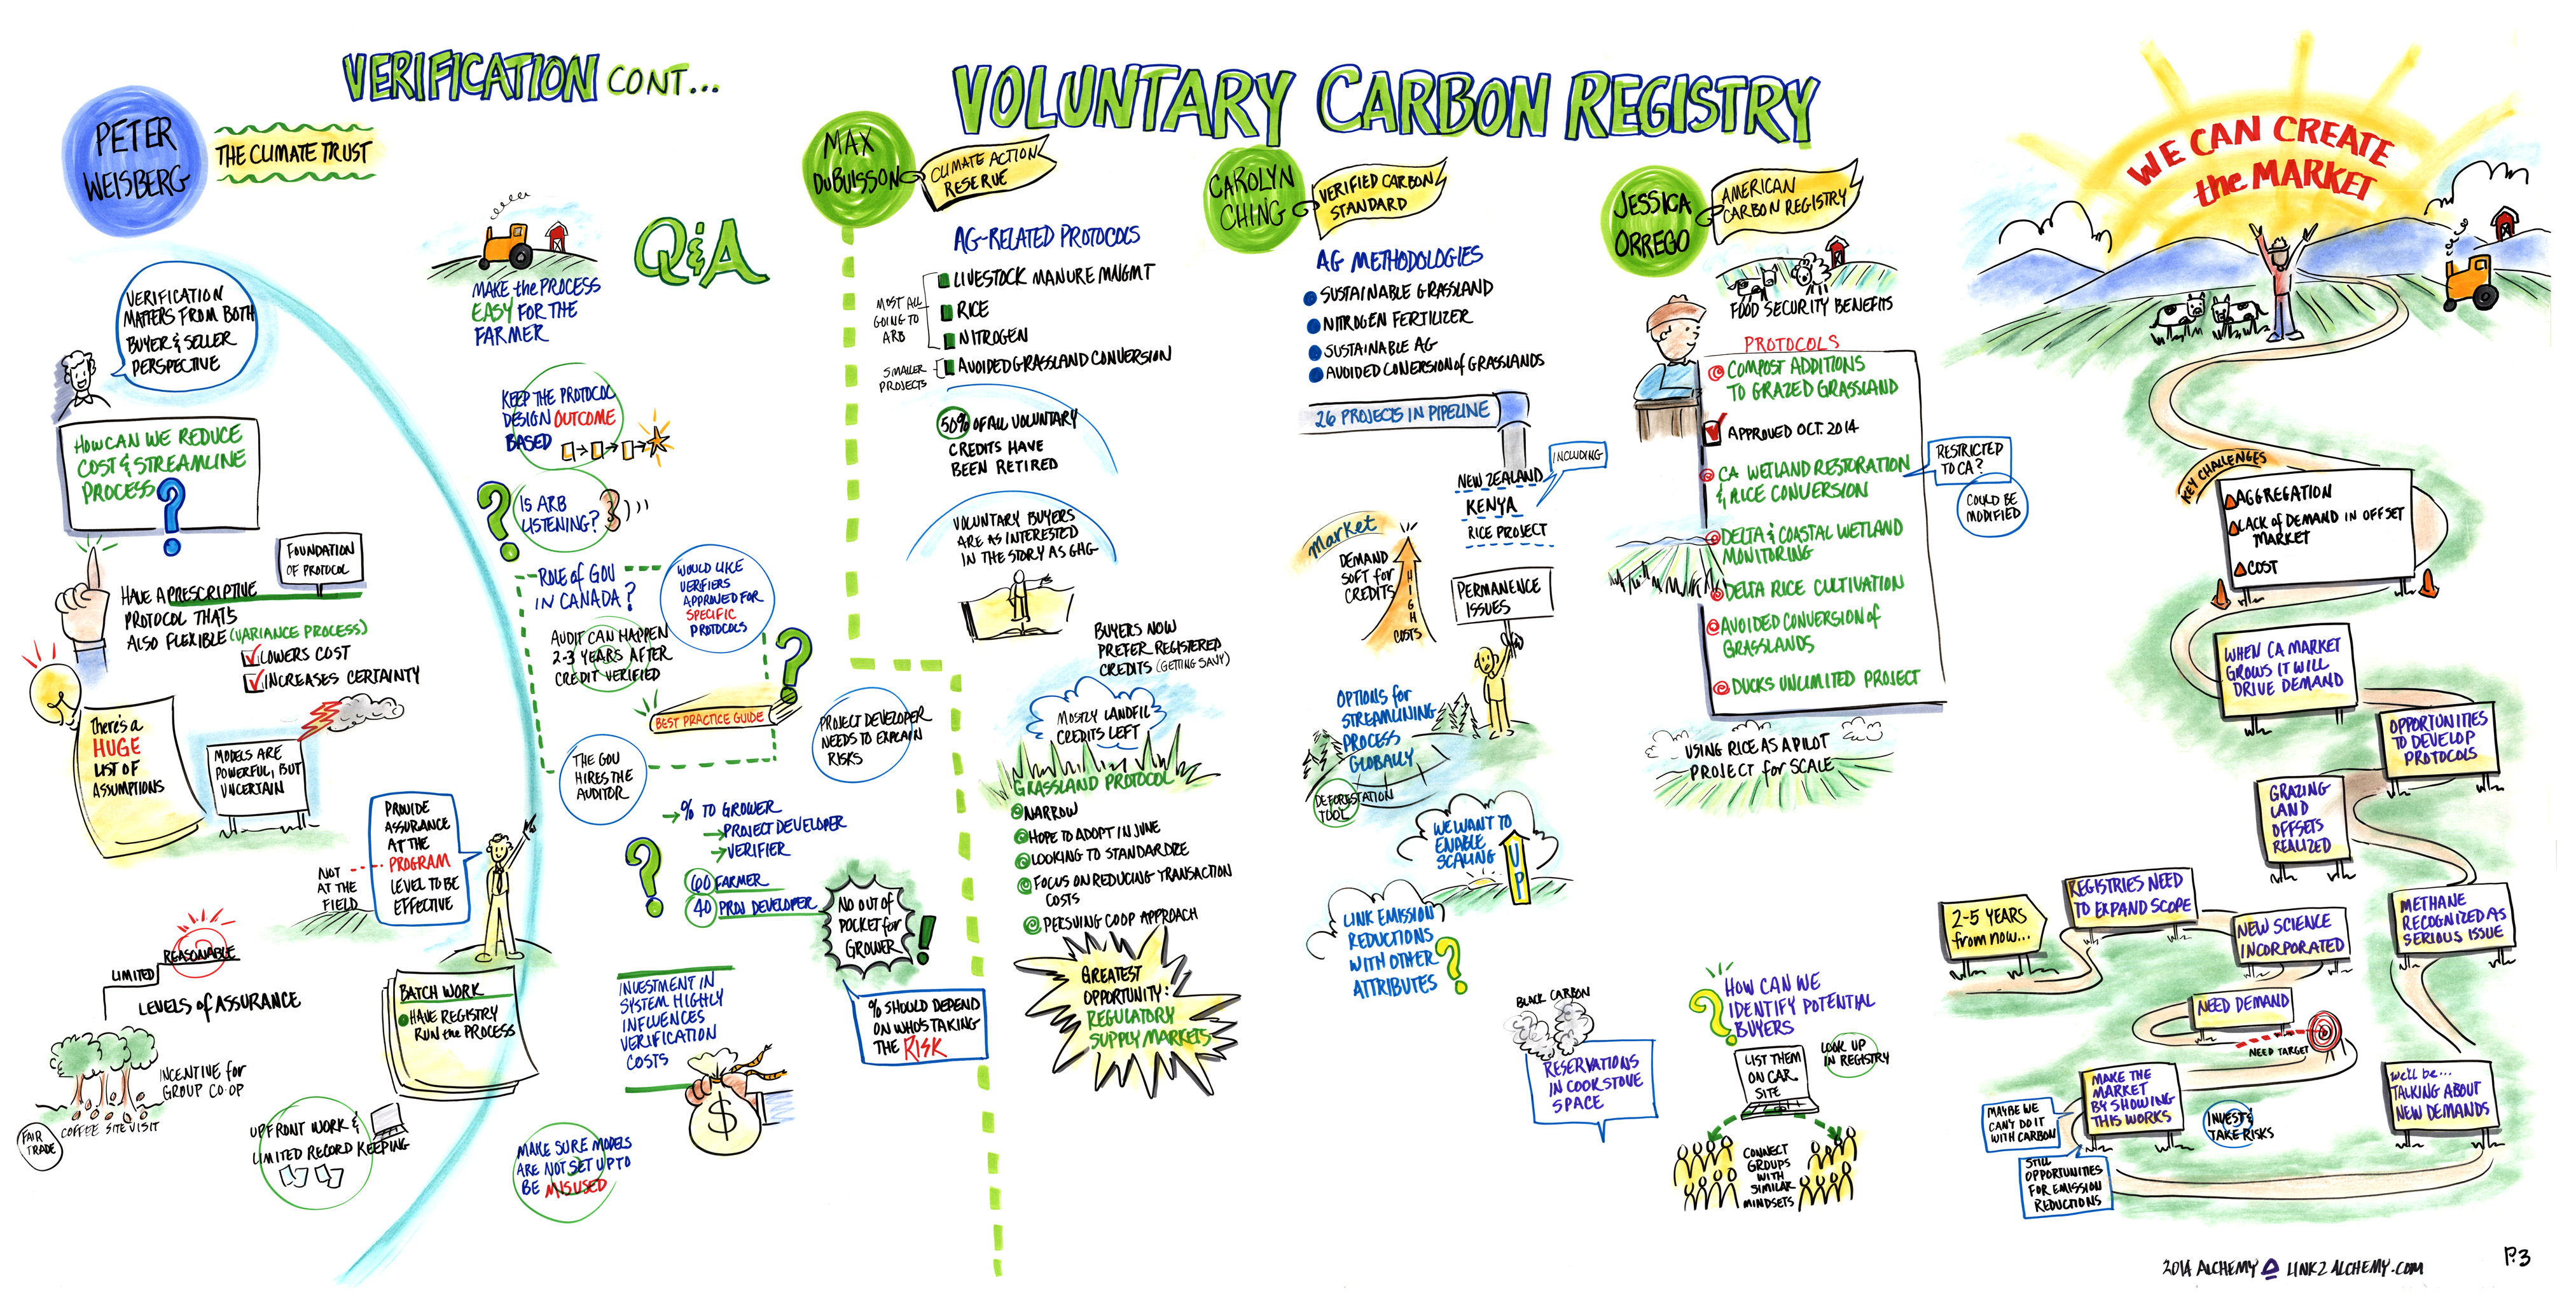 VERIFICATION CONT...
PETER
WEISBERG
THE CLIMATE TRUST
VERIFICATION
MATTERS FROM BOTH
BUYER & SELLER
PERSPECTIVE
HOW CAN WE REDUCE
COST & STREAMLINE
PROCESS
?
FOUNDATION
OF PROTOCOL
HAVE A PRESCRIPTIVE
PROTOCOL THATS
ALSO FLEXIBLE (VARIANCE PROCESS)
LOWERS COST
INCREASES CERTAINTY
There's a
HUGE
LIST OF
ASSUMPTIONS
MODELS ARE
POWERFUL, BUT
UNCERTAIN
PROVIDE
ASSURANCE
AT THE
PROGRAM
LEVEL TO BE
EFFECTIVE
NOT
AT THE
FIELD
REASONABLE
LIMITED
LEVELS of ASSURANCE
INCENTIVE for
GROUP CO-OP
COFFEE SITE VISIT
FAIR
TRADE
BATCH WORK
HAVE REGISTRY
RUN the PROCESS
UPFRONT WORK &
LIMITED RECORD KEEPING
MAKE the PROCESS
EASY FOR THE
FARMER
Q&A
KEEP THE PROTOCOL
DESIGN OUTCOME
BASED
?
IS ARB
LISTENING?
ROLE of GOV
IN CANADA?
WOULD LIKE
VERIFIERS
APPROVED FOR
SPECIFIC
PROTOCOLS
AUDIT CAN HAPPEN
2-3 YEARS AFTER
CREDIT VERIFIED
?
BEST PRACTICE GUIDE
THE GOV
HIRES THE
AUDITOR
PROJECT DEVELOPER
NEEDS TO EXPLAIN
RISKS
?
% TO GROWER
PROJECT DEVELOPER
VERIFIER
60 FARMER
40 PROJ DEVELOPER
NO OUT of
POCKET for
GROWER
!
% SHOULD DEPEND
ON WHO'S TAKING
THE RISK
INVESTMENT IN
SYSTEM HIGHLY
INFLUENCES
VERIFICATION
COSTS
$
MAKE SURE MODELS
ARE NOT SET UP TO
BE MISUSED
VOLUNTARY CARBON REGISTRY
MAX
DuBUISSON
CLIMATE ACTION
RESERVE
AG-RELATED PROTOCOLS
MOST ALL
GOING TO
ARB
LIVESTOCK MANURE MNGMT
RICE
NITROGEN
SMALLER
PROJECTS
AVOIDED GRASSLAND CONVERSION
50% OF ALL VOLUNTARY
CREDITS HAVE
BEEN RETIRED
VOLUNTARY BUYERS
ARE AS INTERESTED
IN THE STORY AS GHG
BUYERS NOW
PREFER REGISTERED
CREDITS (GETTING SAVY)
MOSTLY LANDFIL
CREDITS LEFT
GRASSLAND PROTOCOL
NARROW
HOPE TO ADOPT IN JUNE
LOOKING TO STANDARDIZE
FOCUS ON REDUCING TRANSACTION
COSTS
PERSUING COOP APPROACH
GREATEST
OPPORTUNITY:
REGULATORY
SUPPLY MARKETS
CAROLYN
CHING
VERIFIED CARBON
STANDARD
AG METHODOLOGIES
SUSTAINABLE GRASSLAND
NITROGEN FERTILIZER
SUSTAINABLE AG
AVOIDED CONERSION of GRASSLANDS
26 PROJECTS IN PIPELINE
INCLUDING
NEW ZEALAND
KENYA
RICE PROJECT
Market
DEMAND
SOFT for
CREDITS
HIGH
COSTS
PERMANENCE
ISSUES
OPTIONS for
STREAMLINING
PROCESS
GLOBALLY
DEFORESTATION
TOOL
WE WANT TO
ENABLE
SCALING
UP
LINK EMISSION
REDUCTIONS
WITH OTHER
ATTRIBUTES
?
BLACK CARBON
RESERVATIONS
IN COOKSTOVE
SPACE
JESSICA
ORREGO
AMERICAN
CARBON REGISTRY
FOOD SECURITY BENEFITS
PROTOCOLS
COMPOST ADDITIONS
TO GRAZED GRASSLAND
APPROVED OCT. 2014
CA WETLAND RESTORATION
& RICE CONVERSION
RESTRICTED
TO CA?
COULD BE
MODIFIED
DELTA & COASTAL WETLAND
MONITORING
DELTA RICE CULTIVATION
AVOIDED CONVERSION of
GRASSLANDS
DUCKS UNLIMITED PROJECT
USING RICE AS A PILOT
PROJECT for SCALE
?
HOW CAN WE
IDENTIFY POTENTIAL
BUYERS
LIST THEM
ON CAR
SITE
LOOK UP
IN REGISTRY
CONNECT
GROUPS
WITH
SIMILAR
MINDSETS
WE CAN CREATE
the MARKET
KEY CHALLENGES
AGGREGATION
LACK of DEMAND IN OFFSET
MARKET
COST
WHEN CA MARKET
GROWS IT WILL
DRIVE DEMAND
OPPORTUNITIES
TO DEVELOP
PROTOCOLS
GRAZING
LAND
OFFSETS
REALIZED
METHANE
RECOGNIZED AS
SERIOUS ISSUE
2-5 YEARS
from now...
REGISTRIES NEED
TO EXPAND SCOPE
NEW SCIENCE
INCORPORATED
NEED DEMAND
NEED TARGET
MAKE THE
MARKET
BY SHOWING
THIS WORKS
INVEST &
TAKE RISKS
MAYBE WE
CAN'T DO IT
WITH CARBON
STILL
OPPORTUNITIES
FOR EMISSION
REDUCTIONS
We'll be...
TALKING ABOUT
NEW DEMANDS
2014 ALCHEMY LINK2ALCHEMY.COM
P.3